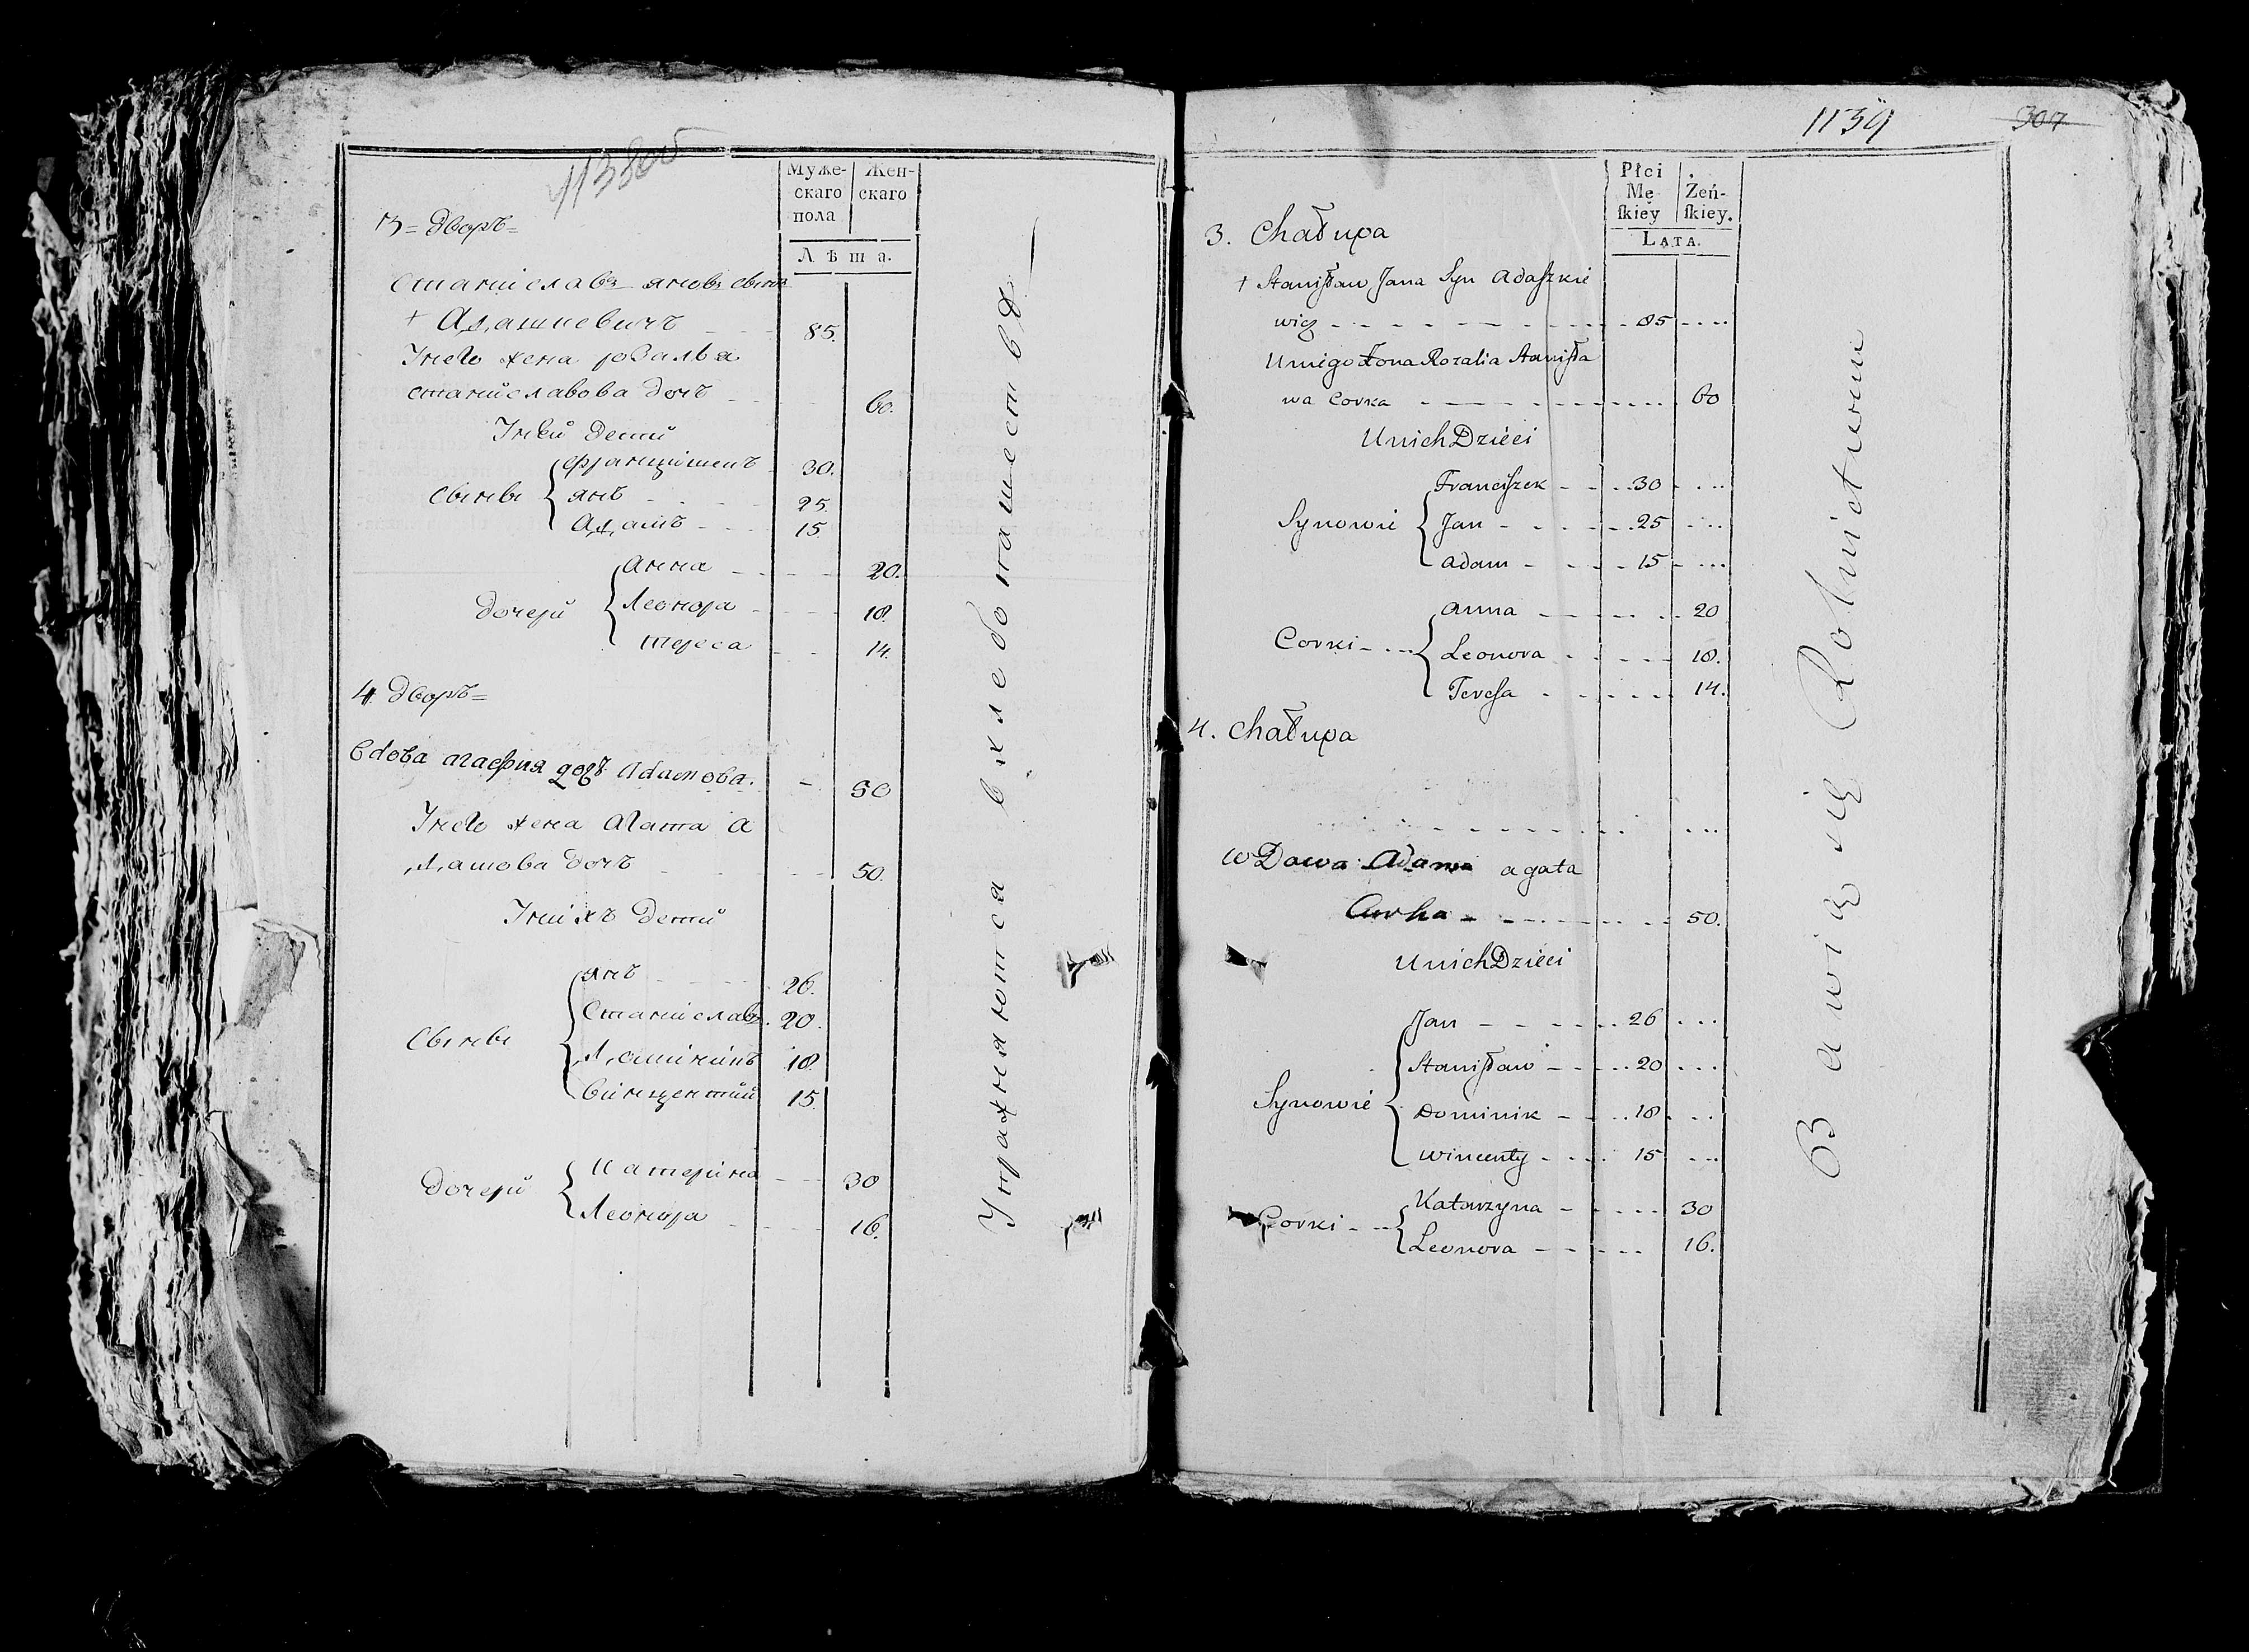 1138 об
Муже- Жен-
скаго скаго
пола
Лѣта.
3 = дворъ =
Станиславъ яновъ сынъ
+ Адашкевичъ - - - 85.
Унего жена розалья
станиславова дочь - - - 60.
Унеи дети
Сынвы
францишекъ - 30.
янъ - - - 25.
Адамъ - - - 15
дочери
анна - - - - 20.
Леонора - - - - 18.
тереса - - - 14.
4 дворъ =
вдова агафия дочь Адамова. - 50
Унего жена Агата а
дамова дочь - - - 50.
Уних детй
Сынвы
янъ - - - 26.
Станиславъ. 20.
доминикъ 18.
винцентий 15.
дочери
катерина - - 30
Леонора - - - 16.
Упражняются в хлебопашестве
1139 307
Płci
Mę- Żeń-
ſkiey ſkiey.
LATA.
3. Chałupa
+ Staniſław Jana Syn Adaſzkie
wicz - - - - - - - - - 85 ....
Uniego Żona Rozalia Staniſła
wa Corka - - - - - - - - 60
Unich Dzieci
Synowie
Franciſzek - - . . 30 - ...
Jan - - - - - - . 25 ....
adam - - - - - 15 - ...
Corki - - ...
anna - - - - - - . . 20
Leonora - - - - - 18.
Tereſa - - - - - - 14.
4. Chałupa
wDowa Adama agata
Curka - - - - - - - 50.
Unich Dzieci
Synowie
Jan - - - - - . . 26 . ...
Staniſław - - - . . . 20 . . .
Dominik - - . . 18 . . . .
wincenty - - - . 15 ...
Corki - - -
Katarzyna - - - - - 30
Leonora - - - - - 16.
Bawią się Rolnictwem